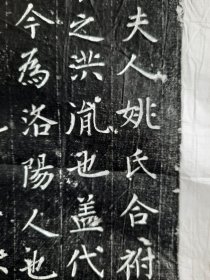 夫人姚氏合祔
之洪胤也盖代
今為洛陽人也